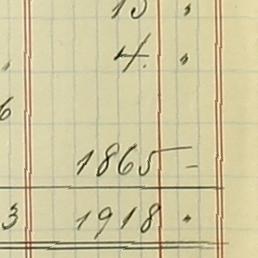 15 "
4. "
6
1865 -
3 1918 "